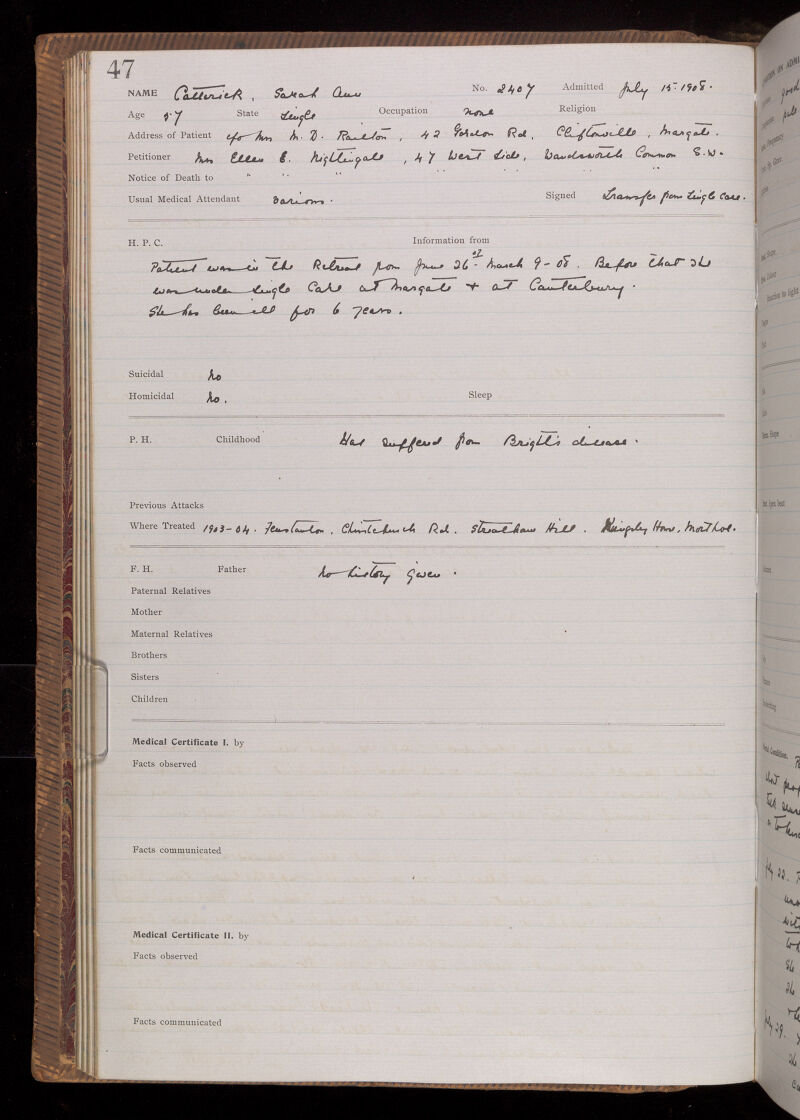 47
NAME Catterick, Sarah Ann No. 2407 Admitted July 15th 1908.
Age 57 State Single Occupation None Religion
Address of Patient c/o Mrs M. D. Railton, 42 Gordon Rd, Cliftonville, Margate.
Petitioner Mrs Ellen E. Nightingale, 47 West Side, Wandsworth Common S.W.
Notice of Death to " " " " " " "
Usual Medical Attendant Various. Signed Transfer from Single Care.
H. P. C. Information from
Patient was in the Retreat from June 26th - March 9 - 08. Before that she
was under Single Care at Margate + at Canterbury.
She has been ill for 6 years.
Suicidal No
Homicidal No. Sleep
P. H. Childhood Has suffered from Bright's disease.
Previous Attacks
Where Treated 1903-04. Fenstanton, Christchurch Rd. Streatham Hill. House,
F. H. Father No history given.
Paternal Relatives
Mother
Maternal Relatives
Brothers
Sisters
Children
Medical Certificate I. by
Facts observed
Facts communicated
Medical Certificate II. by
Facts observed
Facts communicated
good
July 22.
She
July 29.